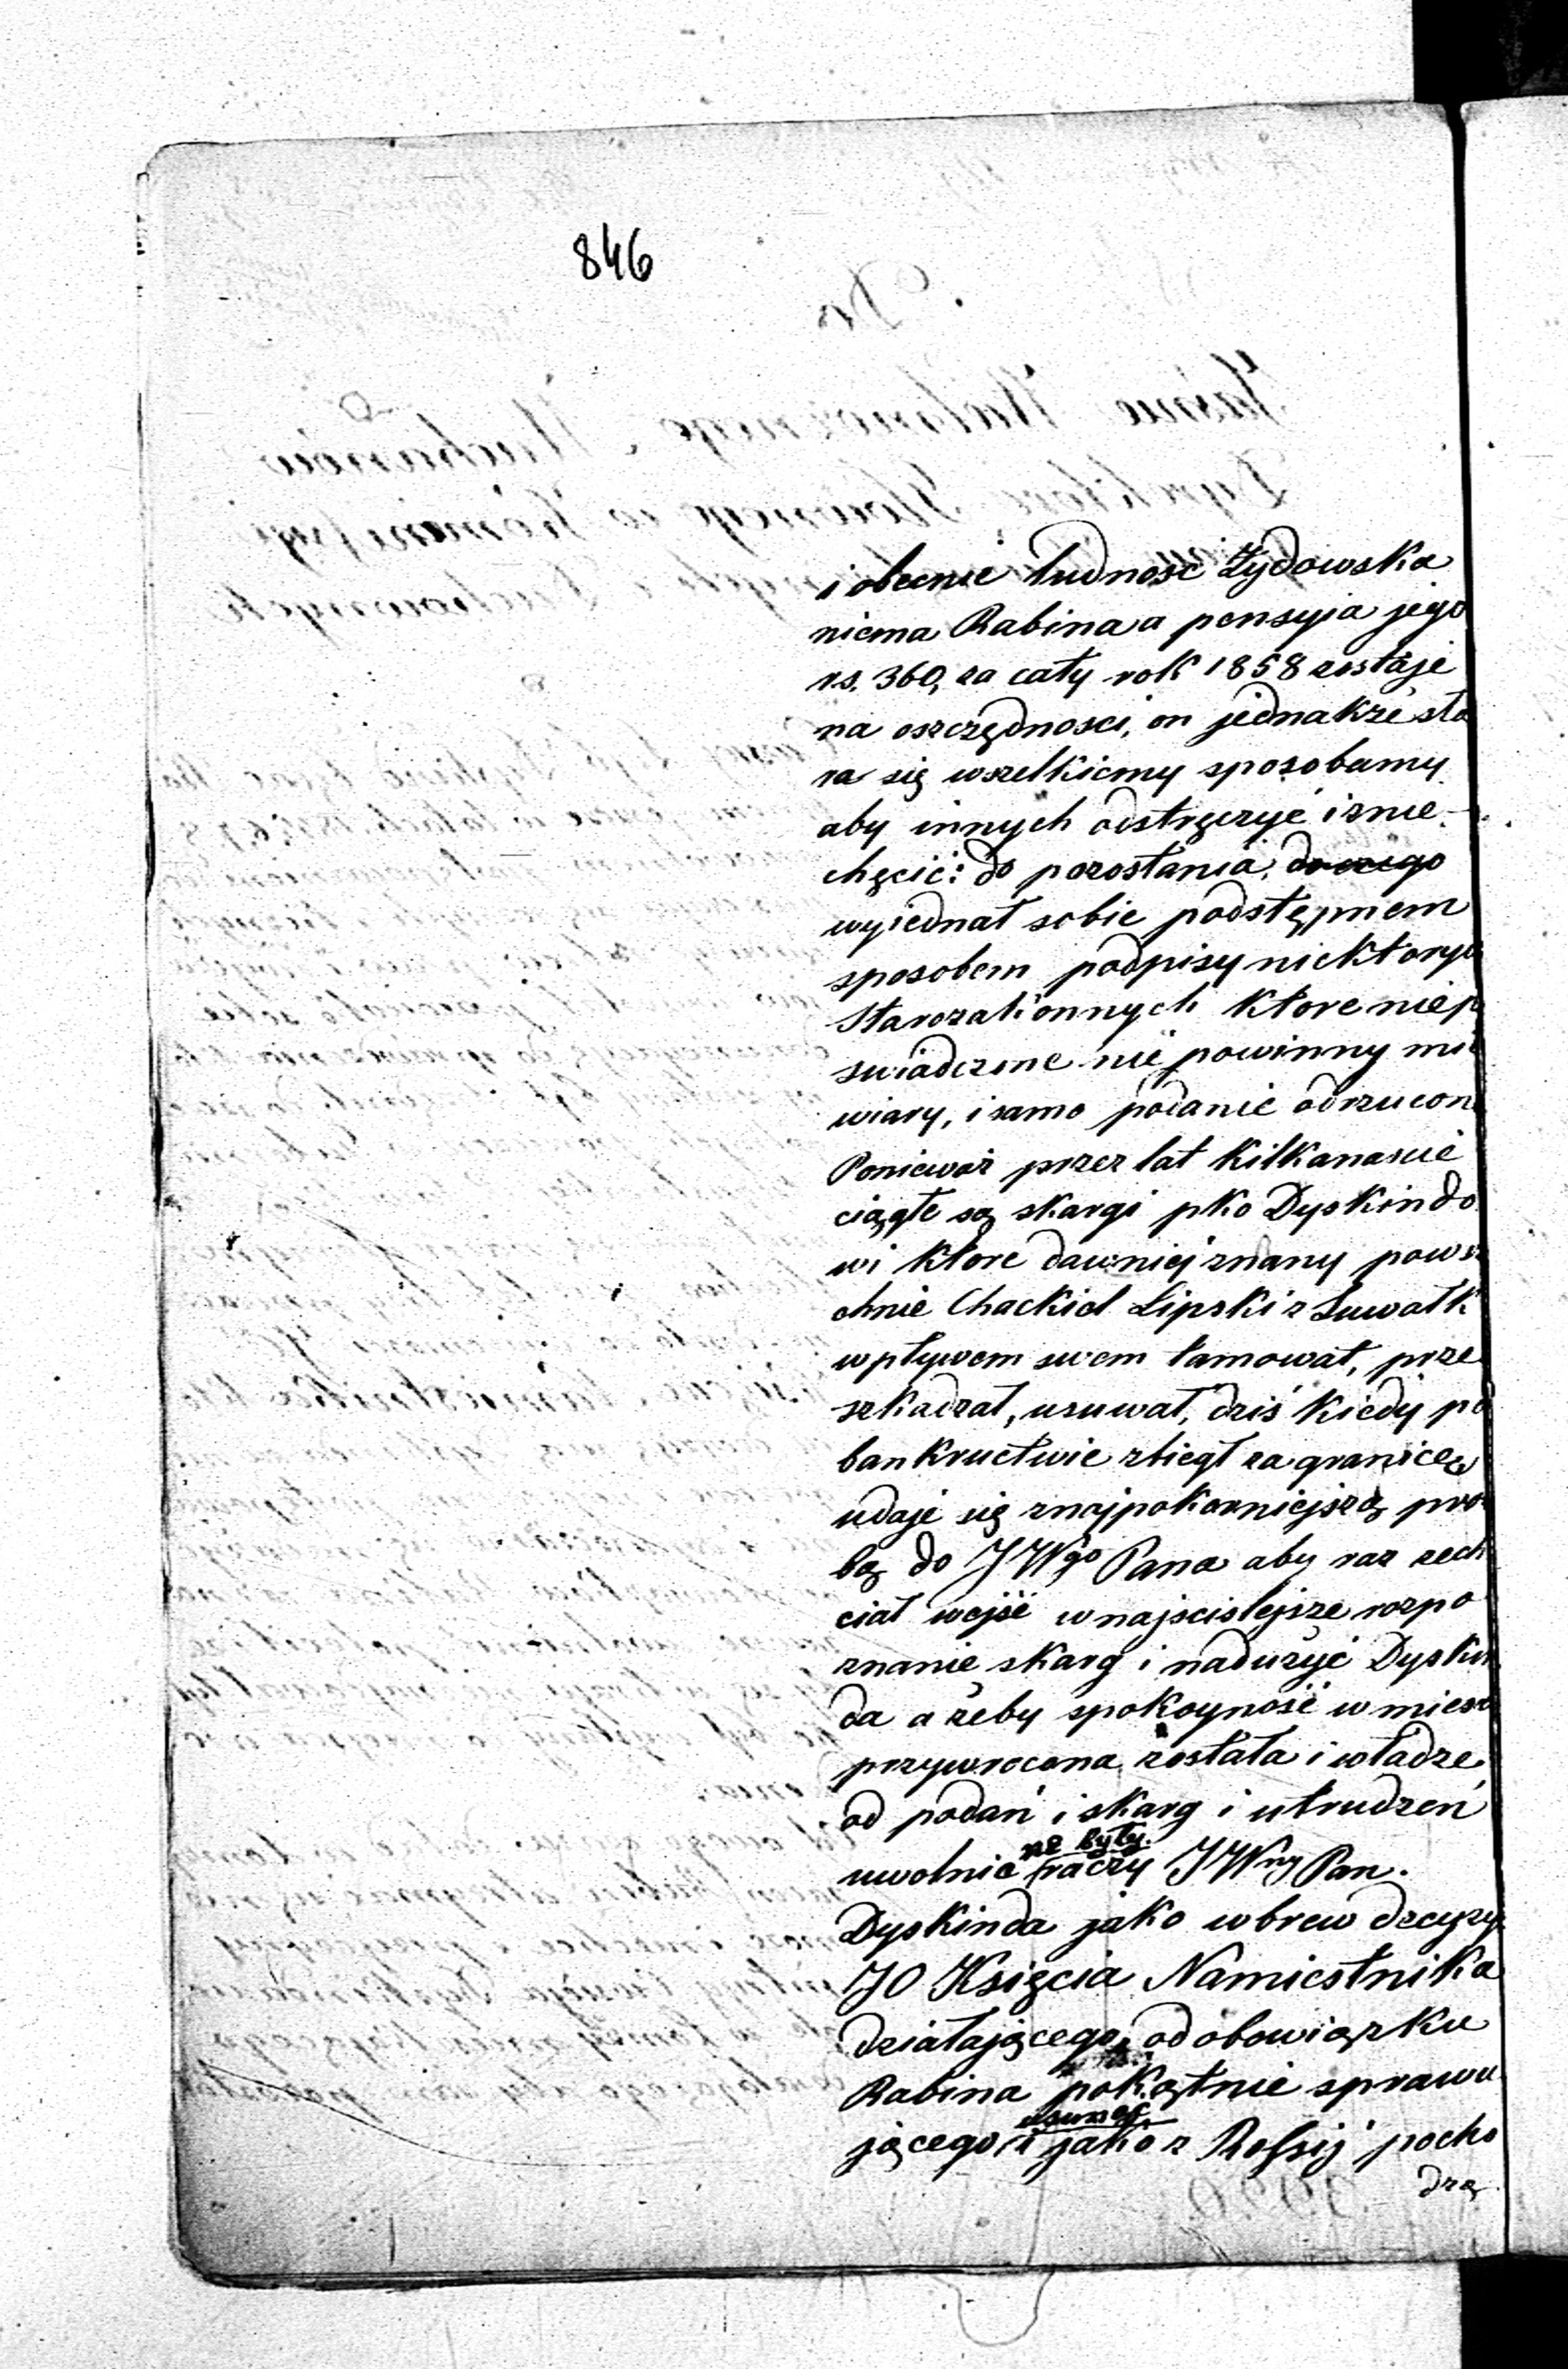 846
i obecnie ludność Żydowska
niema Rabina a pensyia jego
rs. 360, za cały rok 1858 zostaje
na oszczędnosci, on jednakże sta
ra się wszelkiemy sposobamy
aby innych odstręczyć i znie-
chęcić: do pozostania, do czego
wyiednał sobie podstępnem
sposobem podpisy niektoryc
Starozakonnych które niep
swiadczone nie powinny mie
wiary, i samo podanie odrzucone
Ponieważ przez lat kilkanascie
ciągłe są skargi pko Dyskindo
wi które dawniej znany powsz
chnie Chackiel Lipski z Suwałk
wpływem swem tamował, prze
szkadzał, usuwał, dziś kiedy po
bankructwie zbiegł za granicę
udaje się znajpokorniejszą proź
bą do JWgo Pana aby raz zech
ciał wejść w najscislejsze rozpo
znanie skarg i nadużyć Dyskin
da a żeby spokoyność w miescie
przywrocona została i władze
od podań i skarg i utrudzeń
były.
uwolnić raczy JWny Pan.
Dyskinda jako wbrew decyzyi
JO Księcia Namiestnika
działającego, od obowiązku
Rabina pokątnie sprawu
usunąć
jącego i jako z Rossij pocho
dzą